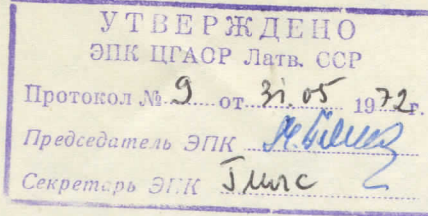 УТВЕРЖДЕНО
ЭПК ЦГАОР Латв. ССР
Протокол № 9 от 31.05 1972г.
Председатель ЭПК
Секретарь ЭПК